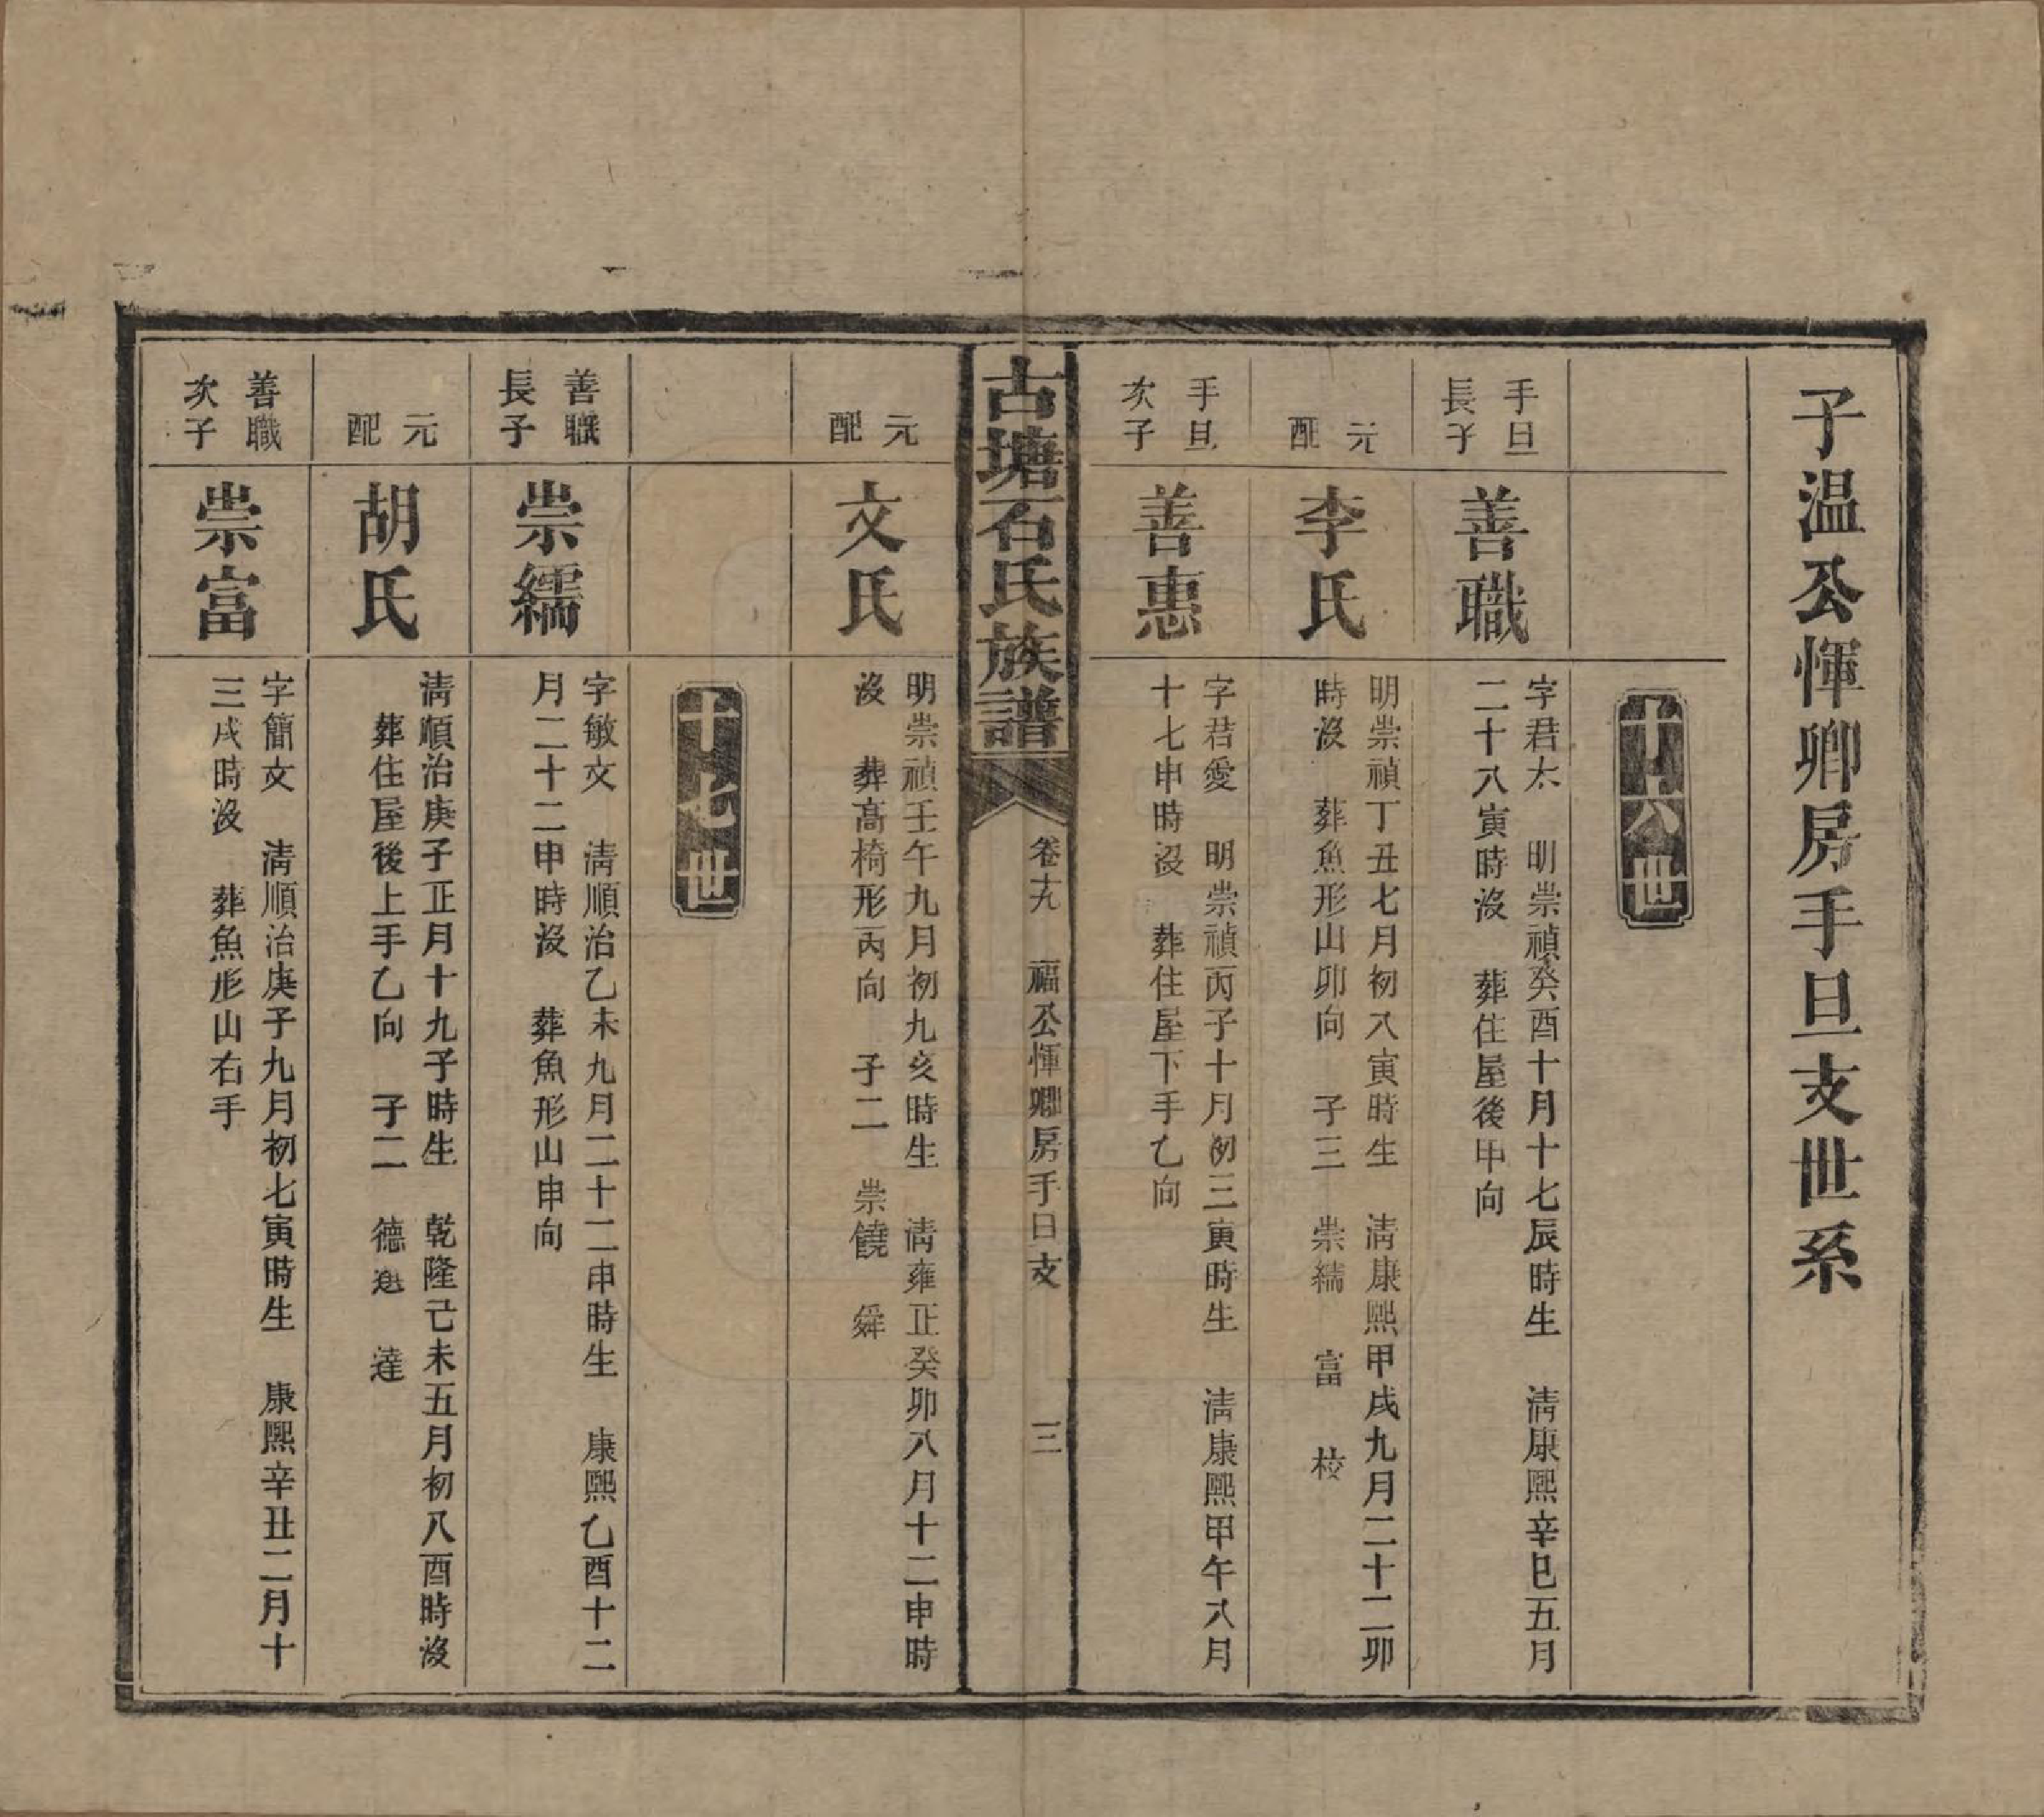 子溫公惲卿房手旦支世系
十六世
手旦
長子
善職
字君太　明崇禎癸酉十月十七辰時生　淸康熙辛巳五月
二十八寅時沒　葬住屋後甲向
元
配
李氏
明崇禎丁丑七月初八寅時生　淸康熙甲戌九月二十二卯
時沒　葬魚形山卯向　子三　崇繻　富　校
手旦
次子
善惠
字君愛　明崇禎丙子十月初三寅時生　淸康熙甲午八月
十七申時沒　葬住屋下手乙向
古塘石氏族譜
卷十九　福公惲卿房手日支　三
元
配
文氏
明崇禎壬午九月初九亥時生　淸雍正癸卯八月十二申時
沒　葬高椅形丙向　子二　崇饒　舜
十七世
善職
長子
崇繻
字敏文　淸順治乙未九月二十二申時生　康熙乙酉十二
月二十二申時沒　葬魚形山申向
元
配
胡氏
淸順治庚子正月十九子時生　乾隆己未五月初八酉時沒
葬住屋後上手乙向　子二　德　達
善職
次子
崇富
字簡文　淸順治庚子九月初七寅時生　康熙辛丑二月十
三戌時沒　葬魚形山右手